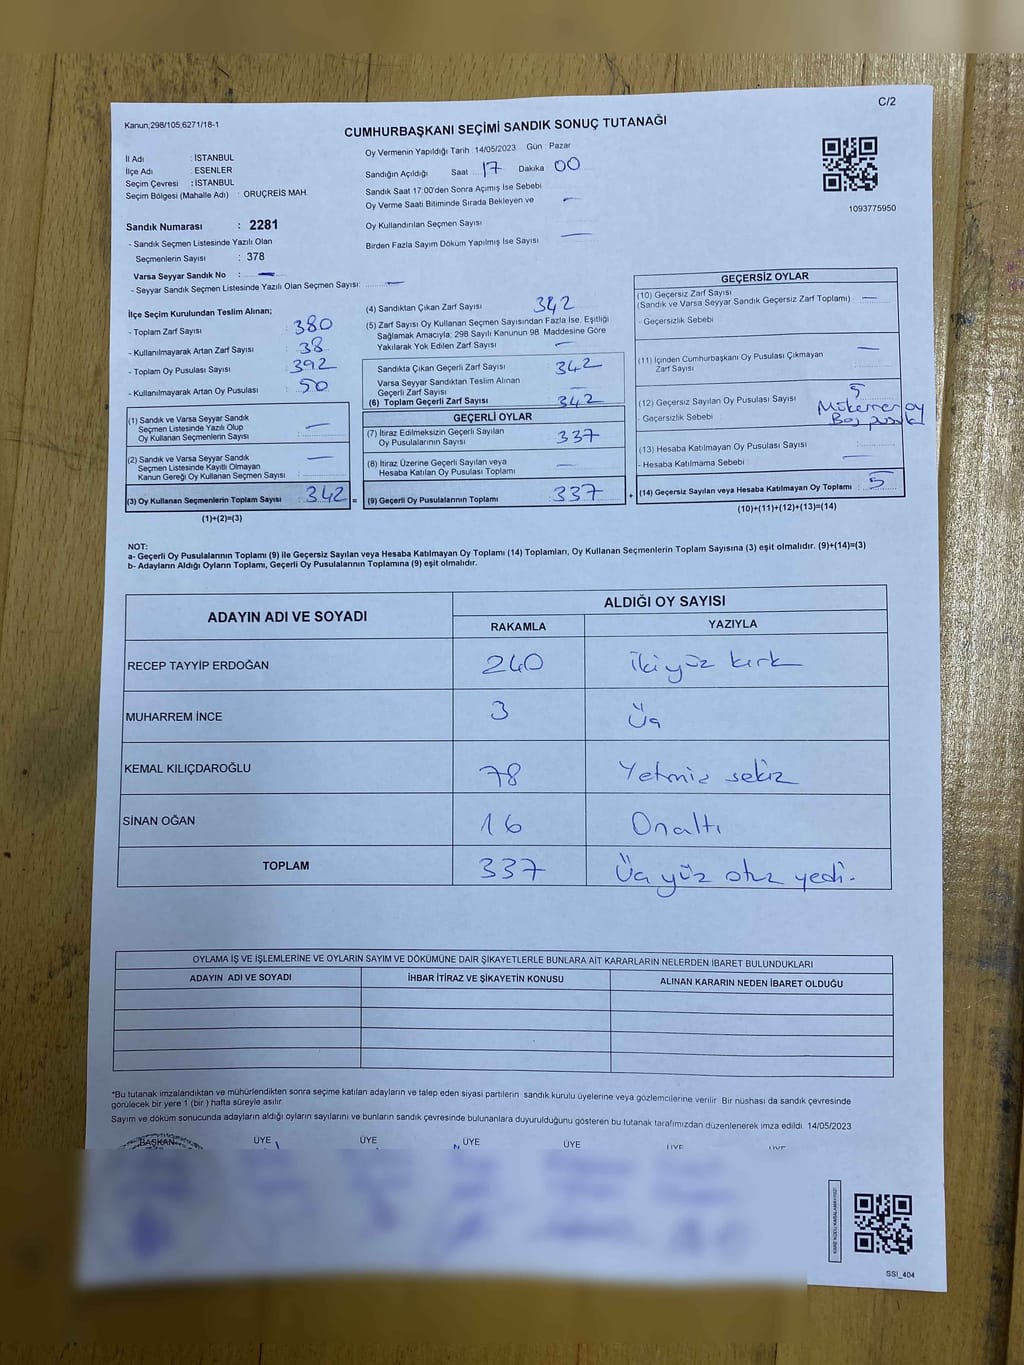 C/2
Kanun;298/105,6271/18-1
CUMHURBAŞKANI SEÇİMİ SANDIK SONUÇ TUTANAĞI
İl Adı : İSTANBUL
İlçe Adı : ESENLER
Seçim Çevresi : İSTANBUL
Seçim Bölgesi (Mahalle Adı) : ORUÇREİS MAH.
Oy Vermenin Yapıldığı Tarih : 14/05/2023 Gün : Pazar
Sandığın Açıldığı Saat 17 Dakika 00
Sandık Saat 17:00'den Sonra Açımış İse Sebebi
Oy Verme Saati Bitiminde Sırada Bekleyen ve —
Oy Kullandırılan Seçmen Sayısı
Birden Fazla Sayım Döküm Yapılmış İse Sayısı —
1093775950
Sandık Numarası : 2281
- Sandık Seçmen Listesinde Yazılı Olan
Seçmenlerin Sayısı : 378
Varsa Seyyar Sandık No : —
- Seyyar Sandık Seçmen Listesinde Yazılı Olan Seçmen Sayısı: —
İlçe Seçim Kurulundan Teslim Alınan;
- Toplam Zarf Sayısı : 380
- Kullanılmayarak Artan Zarf Sayısı : 38
- Toplam Oy Pusulası Sayısı : 392
- Kullanılmayarak Artan Oy Pusulası : 50
(1) Sandık ve Varsa Seyyar Sandık
Seçmen Listesinde Yazılı Olup
Oy Kullanan Seçmenlerin Sayısı —
(2) Sandık ve Varsa Seyyar Sandık
Seçmen Listesinde Kayıtlı Olmayan
Kanun Gereği Oy Kullanan Seçmen Sayısı —
(3) Oy Kullanan Seçmenlerin Toplam Sayısı : 342 =
(1)+(2)=(3)
(4) Sandıktan Çıkan Zarf Sayısı 342
(5) Zarf Sayısı Oy Kullanan Seçmen Sayısından Fazla İse, Eşitliği
Sağlamak Amacıyla; 298 Sayılı Kanunun 98. Maddesine Göre
Yakılarak Yok Edilen Zarf Sayısı —
Sandıkta Çıkan Geçerli Zarf Sayısı 342
Varsa Seyyar Sandıktan Teslim Alınan
Geçerli Zarf Sayısı —
(6) Toplam Geçerli Zarf Sayısı 342
GEÇERLİ OYLAR
(7) İtiraz Edilmeksizin Geçerli Sayılan
Oy Pusulalarının Sayısı 337
(8) İtiraz Üzerine Geçerli Sayılan veya
Hesaba Katılan Oy Pusulası Toplamı —
(9) Geçerli Oy Pusulalarının Toplamı 337 +
GEÇERSİZ OYLAR
(10) Geçersiz Zarf Sayısı
(Sandık ve Varsa Seyyar Sandık Geçersiz Zarf Toplamı) —
- Geçersizlik Sebebi
(11) İçinden Cumhurbaşkanı Oy Pusulası Çıkmayan
Zarf Sayısı —
(12) Geçersiz Sayılan Oy Pusulası Sayısı 5
Geçersizlik Sebebi : oy
Boş
(13) Hesaba Katılmayan Oy Pusulası Sayısı
- Hesaba Katılmama Sebebi —
(14) Geçersiz Sayılan veya Hesaba Katılmayan Oy Toplamı : 5
(10)+(11)+(12)+(13)=(14)
NOT:
a- Geçerli Oy Pusulalarının Toplamı (9) ile Geçersiz Sayılan veya Hesaba Katılmayan Oy Toplamı (14) Toplamları, Oy Kullanan Seçmenlerin Toplam Sayısına (3) eşit olmalıdır. (9)+(14)=(3)
b- Adayların Aldığı Oyların Toplamı, Geçerli Oy Pusulalarının Toplamına (9) eşit olmalıdır.
ADAYIN ADI VE SOYADI
ALDIĞI OY SAYISI
RAKAMLA YAZIYLA
RECEP TAYYİP ERDOĞAN 240 iki yüz kırk
MUHARREM İNCE 3 Üç
KEMAL KILIÇDAROĞLU 78 Yetmiş sekiz
SİNAN OĞAN 16 Onaltı
TOPLAM 337 Üç yüz otuz yedi.
OYLAMA İŞ VE İŞLEMLERİNE VE OYLARIN SAYIM VE DÖKÜMÜNE DAİR ŞİKAYETLERLE BUNLARA AİT KARARLARIN NELERDEN İBARET BULUNDUKLARI
ADAYIN ADI VE SOYADI İHBAR İTİRAZ VE ŞİKAYETİN KONUSU ALINAN KARARIN NEDEN İBARET OLDUĞU
*Bu tutanak imzalandıktan ve mühürlendikten sonra seçime katılan adayların ve talep eden siyasi partilerin sandık kurulu üyelerine veya gözlemcilerine verilir Bir nüshası da sandık çevresinde
görülecek bir yere 1 (bir ) hafta süreyle asılır
Sayım ve döküm sonucunda adayların aldığı oyların sayılarını ve bunların sandık çevresinde bulunanlara duyurulduğunu gösteren bu tutanak tarafımızdan düzenlenerek imza edildi 14/05/2023
BAŞKAN ÜYE ÜYE ÜYE ÜYE ÜYE ÜYE
SSI_404